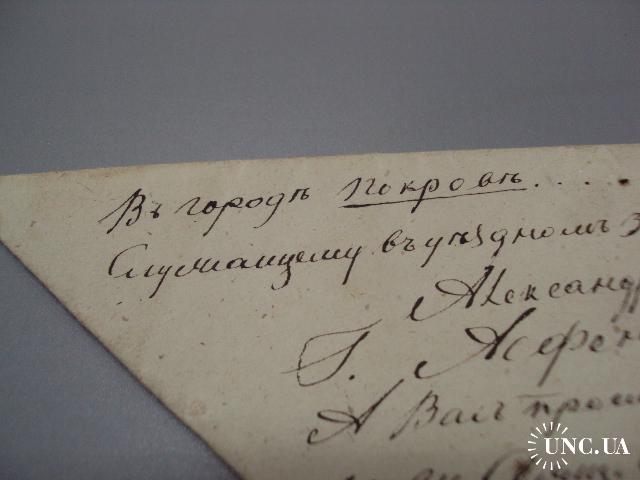 Въ городѣ Покровѣ....
Служащему въ уѣздномъ З
Александ
Г. Асфен
А Вас прош
UNC.UA